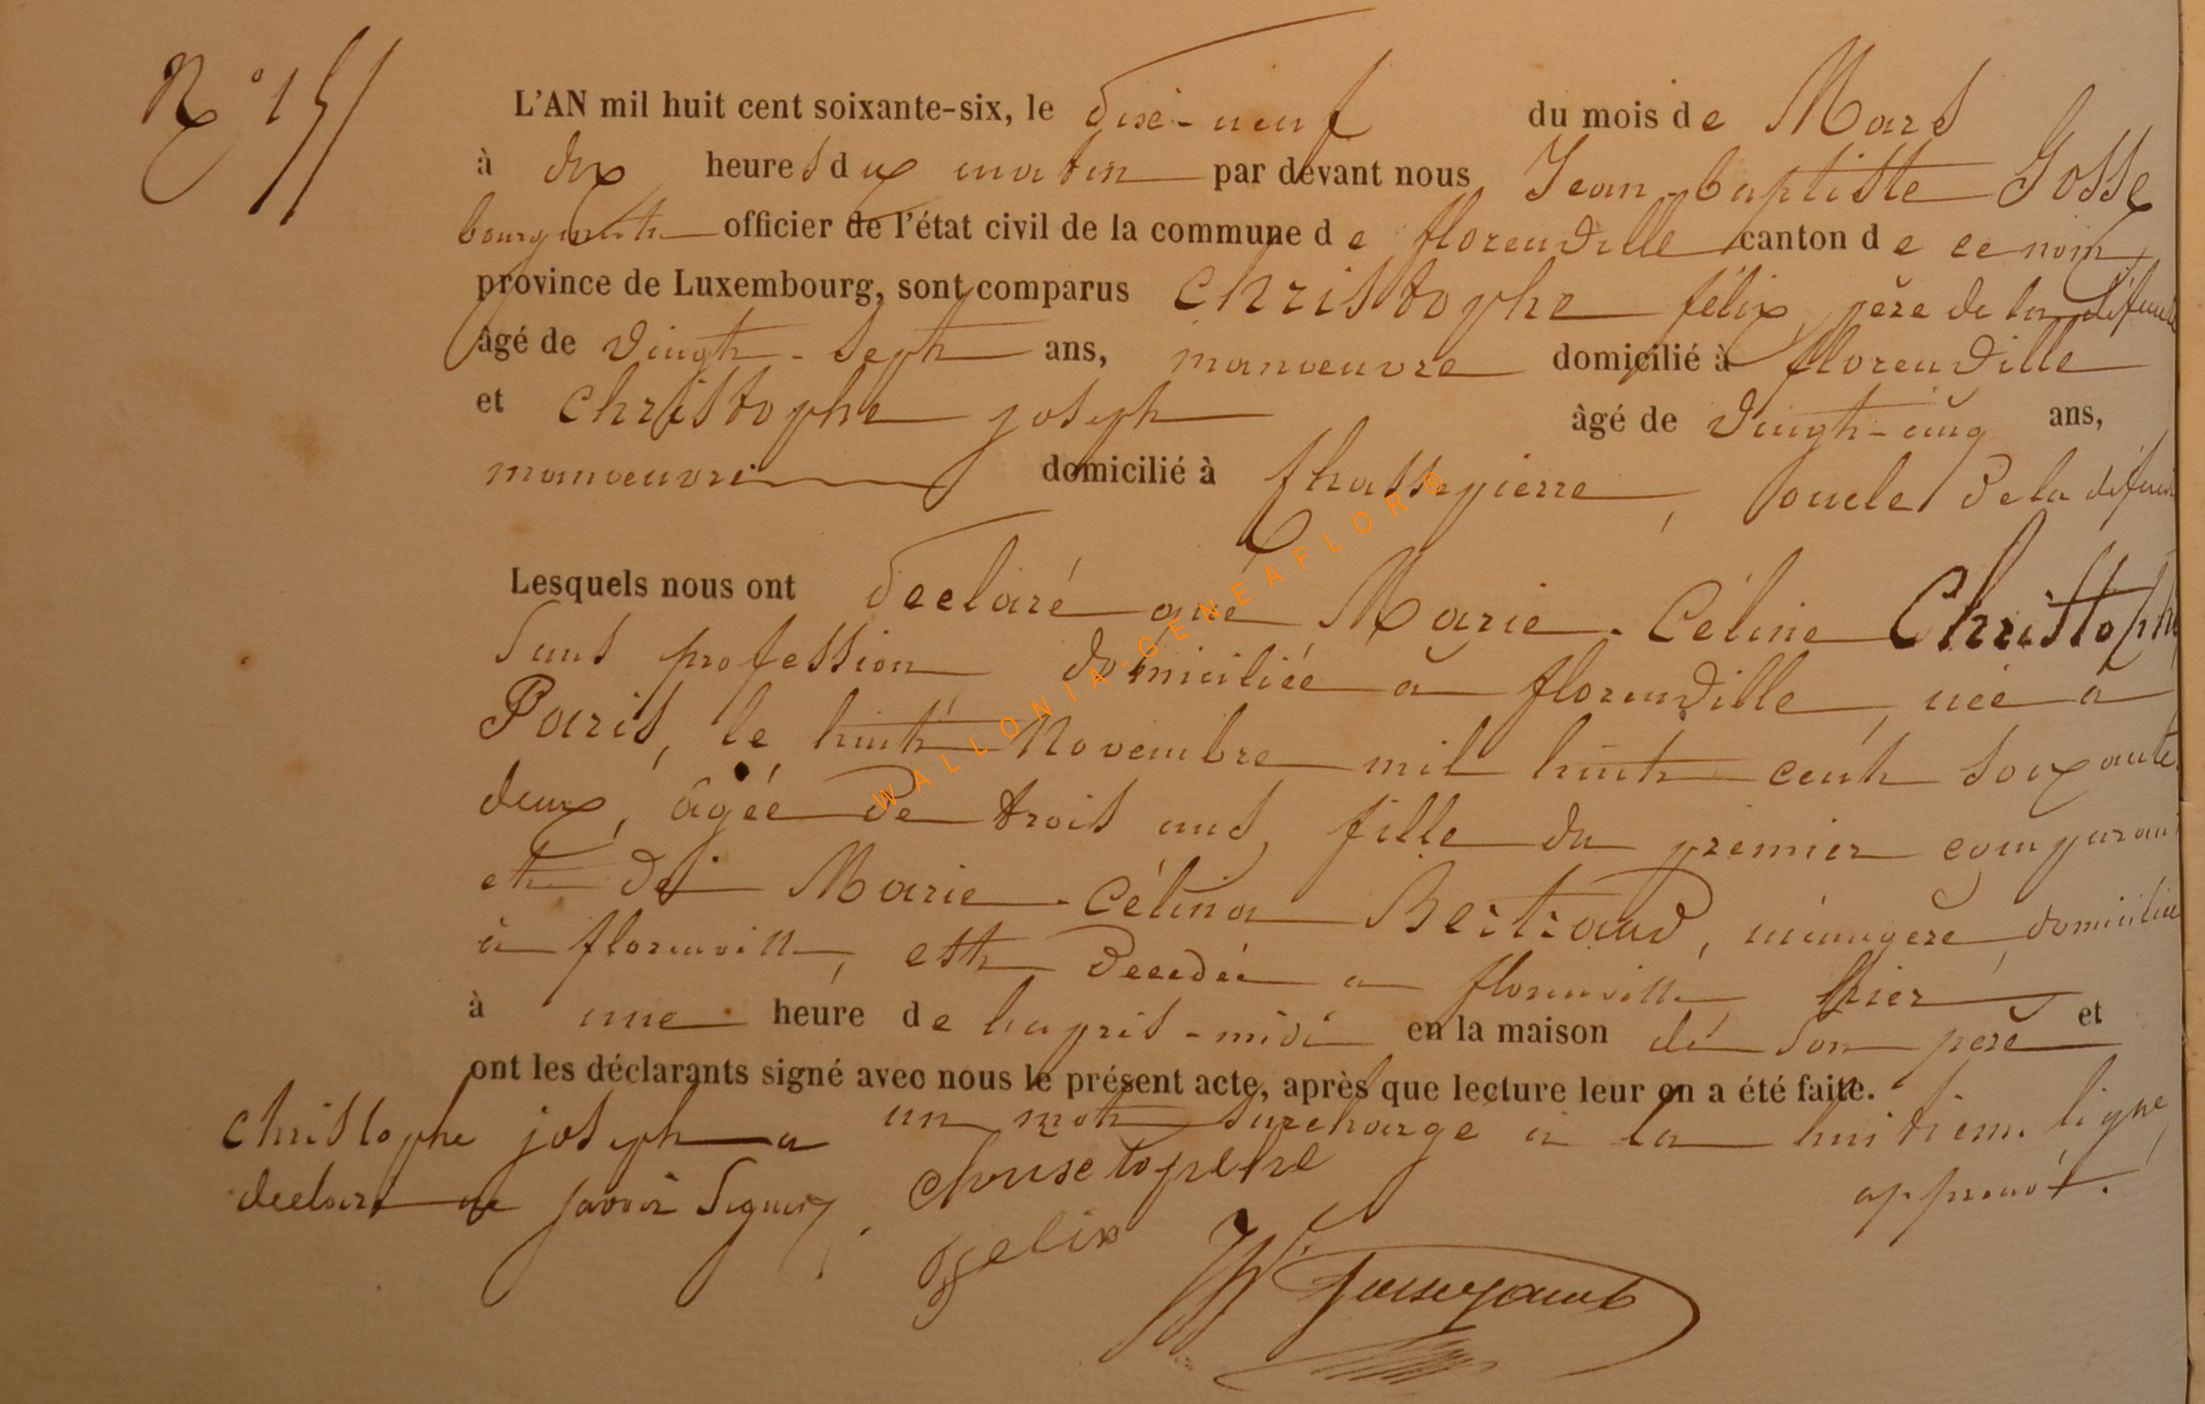 N° 15
L'AN mil huit cent soixante-six, le dixe-neuf du mois de Mars
à dix heures du matin par devant nous Jean-baptiste Gosse
bourgmestre officier de l'état civil de la commune de florenville canton de ce nom
province de Luxembourg, sont comparus Christophe félix, père de la défunte
âgé de vingt-sept ans, manoeuvre domicilié à florenville
et Christophe joseph âgé de vingt-cinq ans,
manoeuvre domicilié à Chassepierre, oncle de la défunte
Lesquels nous ont déclaré que Marie-Céline Christophe
sans profession domiciliée à florenville, née à
Paris, le huit Novembre mil huit cent soixante
deux, âgée de trois ans, fille du premier comparant
et de Marie-Célina Bertrand, ménagère, domiciliée
à florenville, est décedée à florenville hier
à une heure de l'après-midi en la maison de son père et
ont les déclarants signé avec nous le présent acte, après que lecture leur en a été faite.
Christophe joseph a un mot surchargé à la huitième ligne
declaré ne savoir signer, approuvé.
Chrisetophe
felix
WALLONIA-GENEAFLOR©